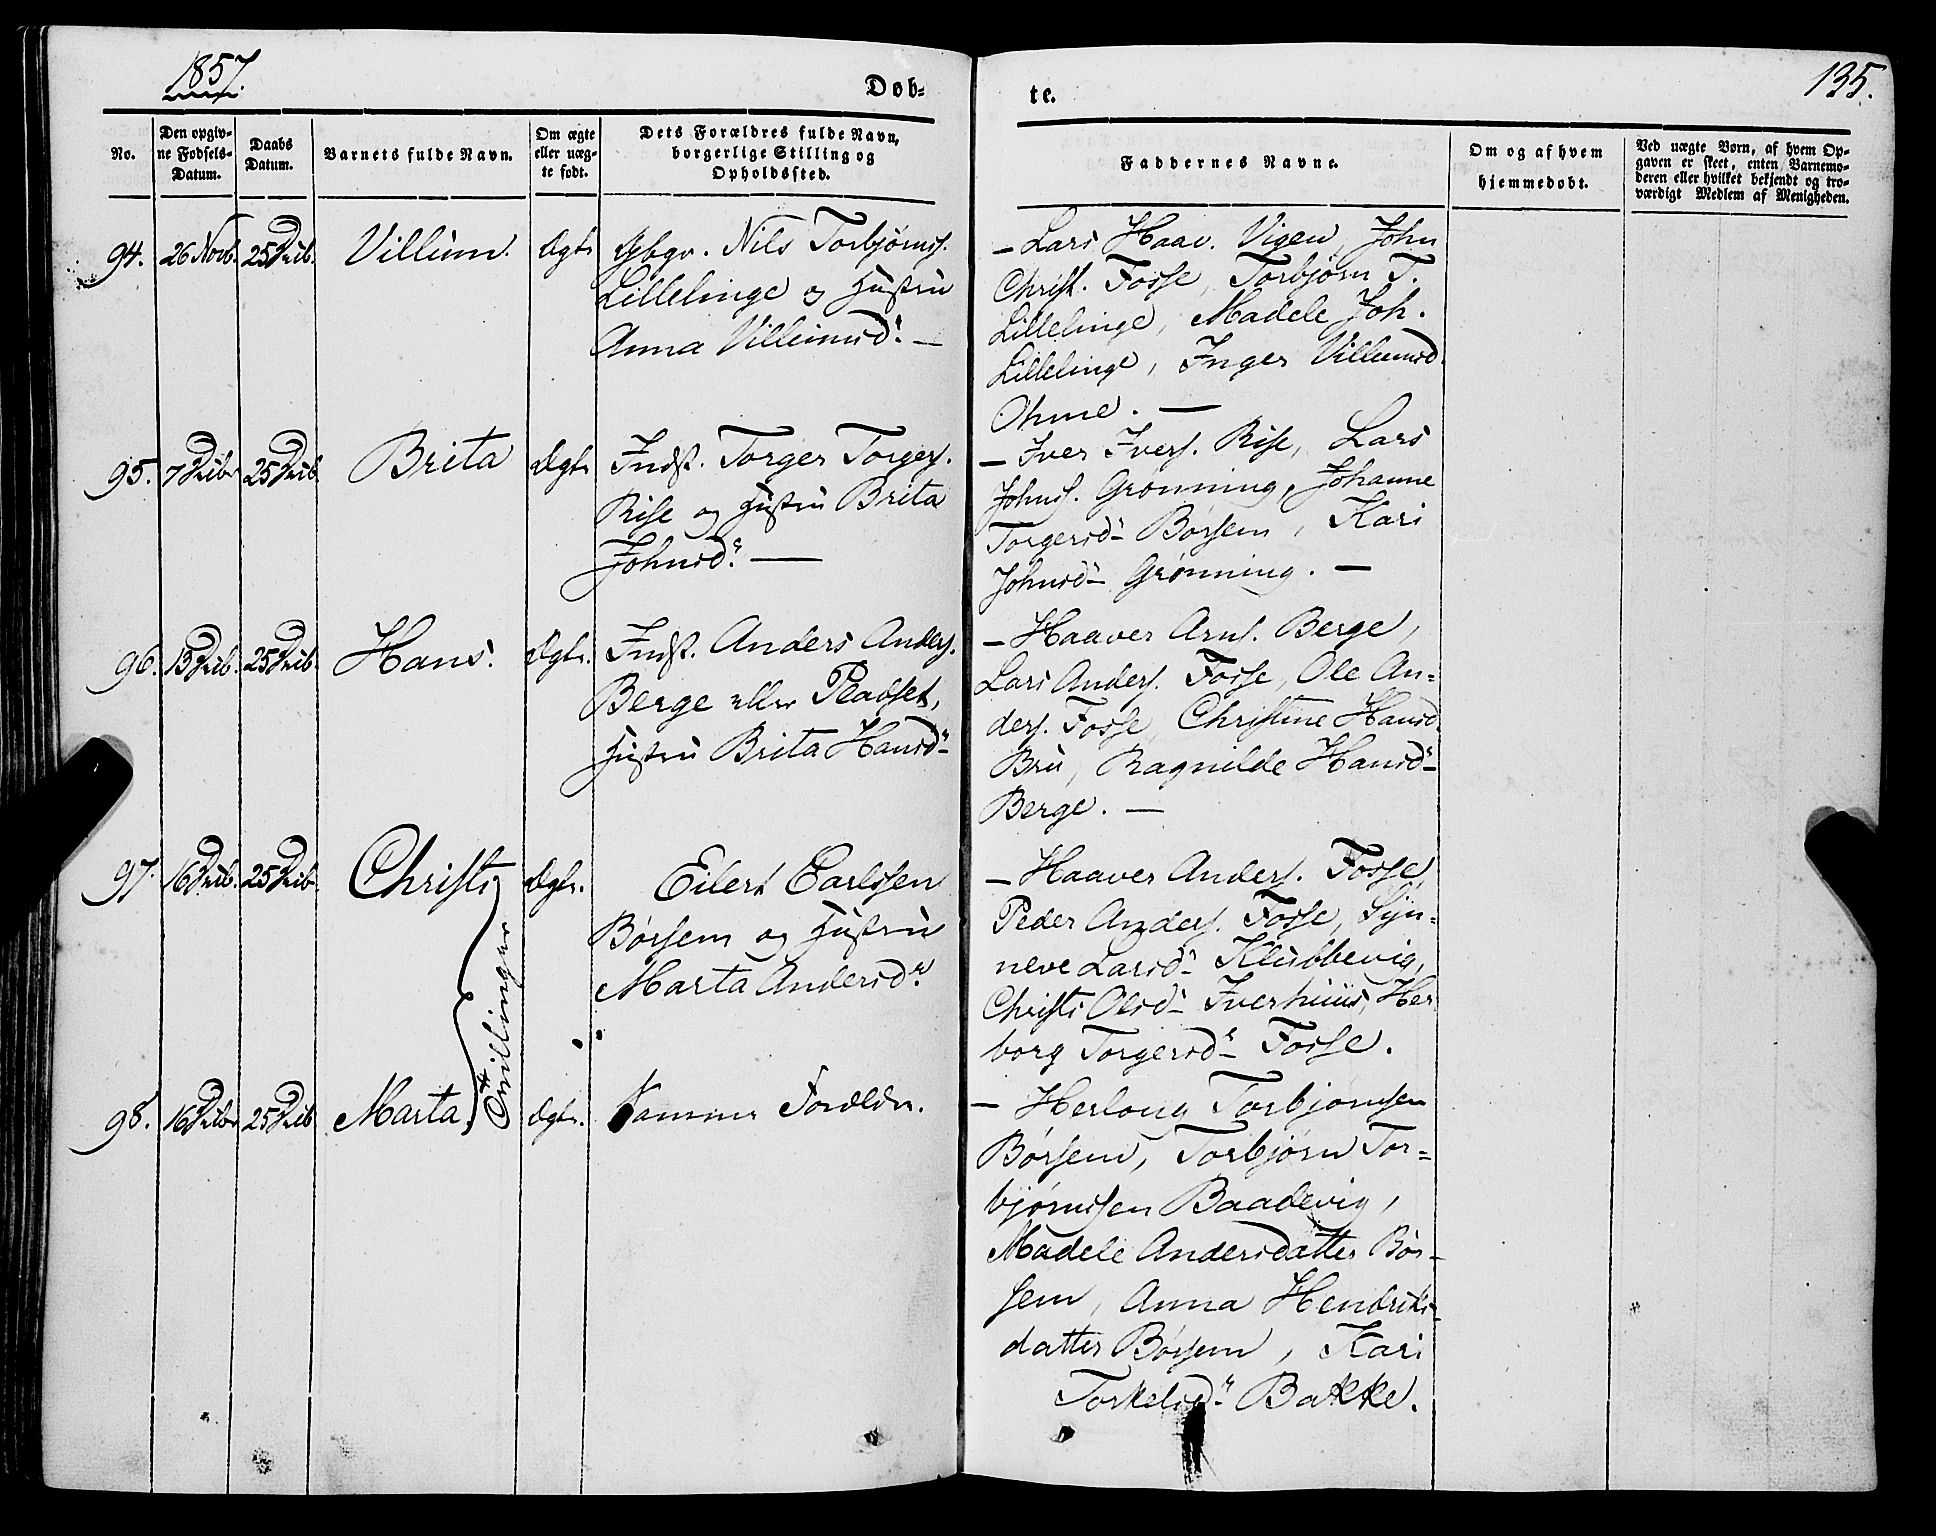 1857.
Døb-
te.
135.
No.
Den opgiv-
ne Fødsels-
Datum.
Daabs
Datum.
Barnets fulde Navn.
Om ægte
eller uæg-
te født.
Dets Forældres fulde Navn,
borgerlige Stilling og
Opholdssted.
Faddernes Navne.
Om og af hvem
hjemmedøbt.
Ved uægte Børn, af hvem Op-
gaven er skeet, enten Barnemo-
deren eller hvilket bekjendt og tro-
værdigt Medlem af Menigheden.
94. 26 Novb. 25 Dcib. Villum. Ægte Gbgr. Nils Torbjørns.
Lillelinge og Hustru
Anna Villumsd. —
— Lars Haav. Vigen, John
Christ. Fosse, Torbjørn T.
Lillelinge, Madele Joh.
Lillelinge, Inger Villumsd.
Ohme. —
95. 7 Dcibr 25 Dcib. Brita Ægte Indst. Torger Torgers.
Rise og Hustru Brita
Johnsd. —
— Iver Ivers. Rise, Lars
Johns. Grønning, Johanne
Torgersd- Børsem, Kari
Johnsd- Grønning. —
96. 13 Dcib. 25 Dcib. Hans. Ægte. Indst. Anders Anders.
Berge eller Pladset,
Hustru Brita Hansd-
— Haaver Arns. Berge,
Lars Anders. Fosse, Ole An=
ders. Fosse, Christine Hansd.
Bru, Ragnilde Hansd-
Berge. —
97. 16 Dcib. 25 Dcib. Christi Ægte. Eilert Carlssen
Børsem og Hustru
Marta Andersd.
— Haaver Anders. Fosse,
Peder Anders. Fosse, Syn=
neve Larsd- Klubbevig,
Christi Olsd- Iverhuus, Her
borg Torgersd- Fosse.
Tvillinger
98. 16 Dcibr 25 Dcib Marta, Ægte. Samme Forældr.
— Herlong Torbjørnsen
Børsem, Torbjørn Tor=
bjørnssen Baadevig,
Madele Andersdatter Bør-
sem, Anna Hendriks-
datter Børsem, Kari
Torkelsd- Bakke.